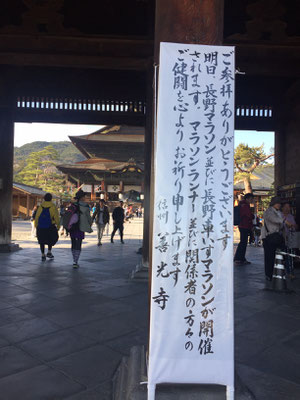 ご参拝ありがとうございます
明日、長野マラソン並びに長野車いすマラソンが開催
されます。マラソンランナー並びに関係者の方々の
ご健闘を心よりお祈り申し上げます
信州 善光寺